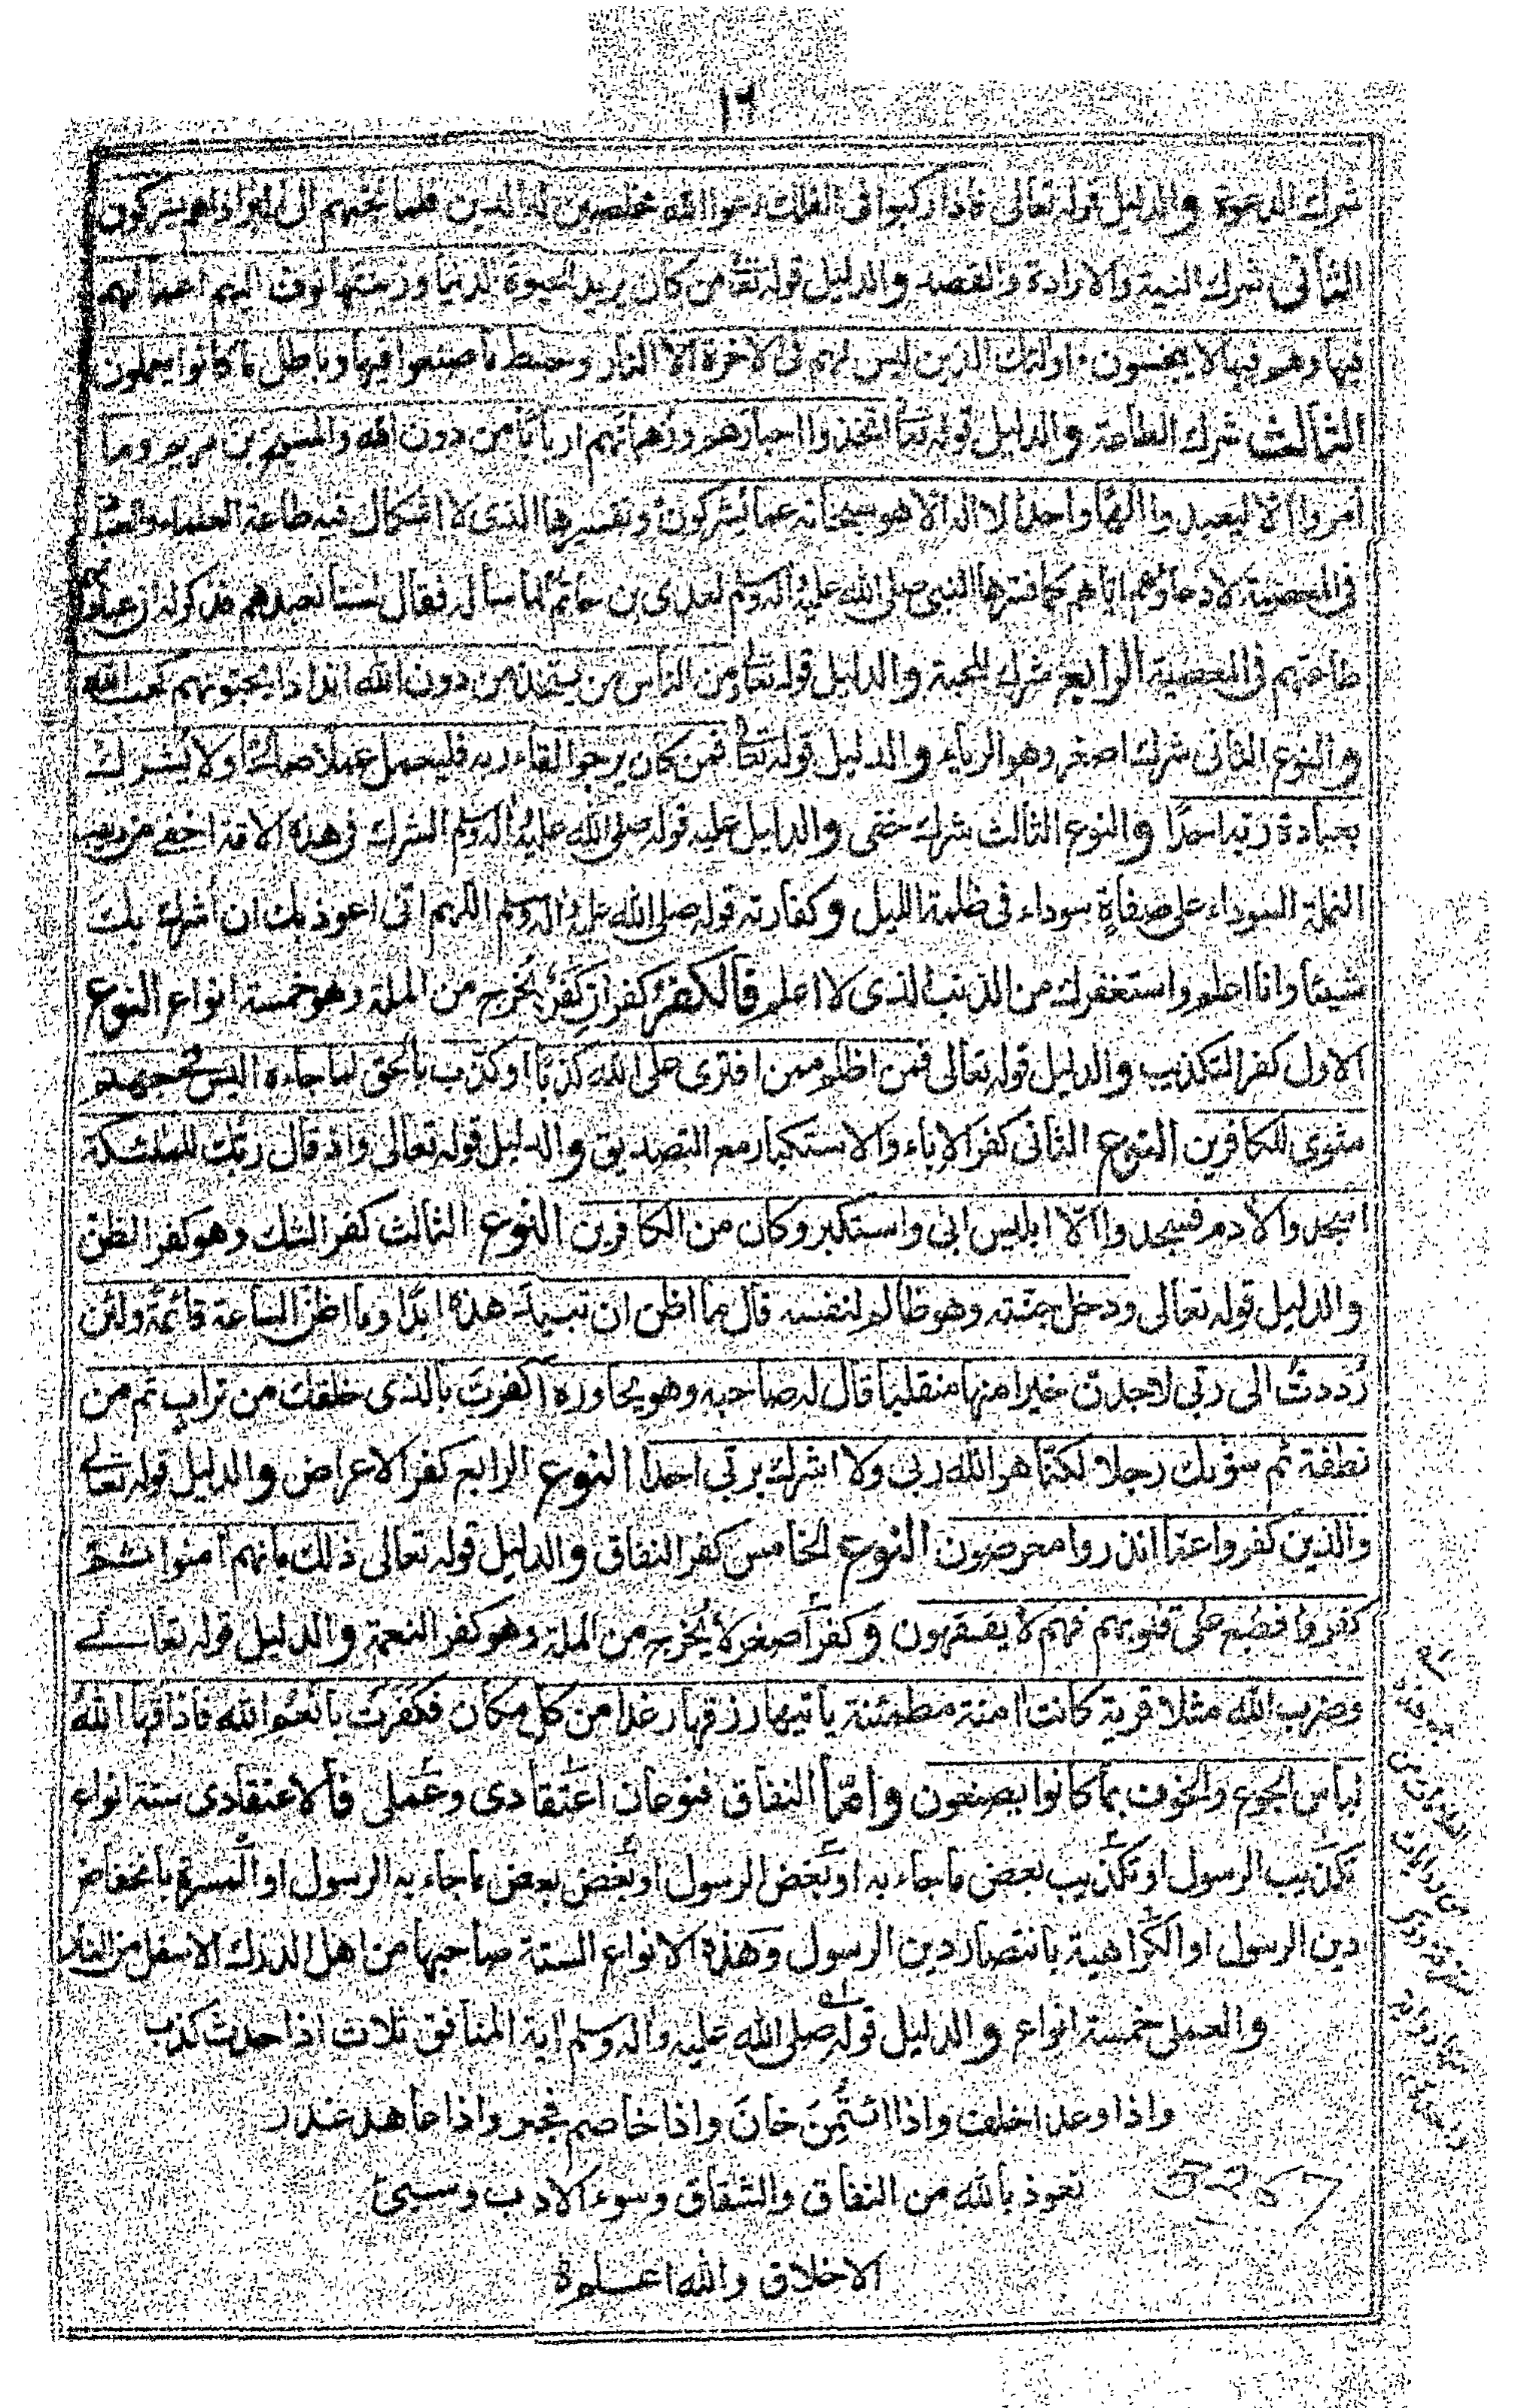 ١٢
شرك الدعوة والدليل قوله تعالى فاذا ركبوا فى الفلك دعوا الله مخلصين له الدين فلما نجٰهم الى البر اذا هم يشركون
الثانى شرك النية والارادة والقصد والدليل قوله تعا من كان يريد الحيوة الدنيا وزينتها نوف اليهم اعمالهم
فيها وهم فيها لا يبخسون اولئك الذين ليس لهم فى الاخرة الا النار وحبط ما صنعوا فيها وباطل ما كانوا يعملون
الثالث شرك الطاعة والدليل قوله تعا اتخذوا احبارهم ورهبانهم اربابا من دون الله والمسيح بن مريم وما
امروا الا ليعبدوا الها واحدا لا اله الا هو سبحانه عما يشركون وتفسيرها الذى لا اشكال فيه طاعة العلماء والعباد
فى المعصية لا دعاؤهم اياهم كما فسرها النبى صلى الله عليه واله وسلم لعدى بن حاتم لما سأله فقال لسنا نعبدهم فذكر له ان عبادتهم
طاعتهم فى المعصية الرابع شرك المحبة والدليل قوله تعا ومن الناس من يتخذ من دون الله اندادا يحبونهم كحب الله
والنوع الثانى شرك اصغر وهو الرياء والدليل قوله تعا فمن كان يرجوا لقاء ربه فليعمل عملا صالحا ولا يشرك
بعبادة ربه احدا والنوع الثالث شرك خفى والدليل عليه قوله صلى الله عليه واله وسلم الشرك فى هذه الامة اخفے من دبيب
النملة السوداء على صفاةٍ سوداء فى ظلمة الليل وكفارته قوله صلى الله عليه واله وسلم اللهم انى اعوذ بك ان اشرك بك
شيئا وانا اعلم واستغفرك من الذنب الذى لا اعلم فالكفر كفران كفر يُخرج من الملة وهو خمسة انواع النوع
الاول كفر التكذيب والدليل قوله تعالى فمن اظلم ممن افترى على الله كذبا او كذّب بالحق لما جاءه اليس فى جهنم
مثوى للكافرين النوع الثانى كفر الاباء والاستكبار مع التصديق والدليل قوله تعالى واذ قال ربّك للملئكة
اسجدوا لادم فسجدوا الا ابليس ابى واستكبر وكان من الكافرين النوع الثالث كفر الشك وهو كفر الظن
والدليل قوله تعالى ودخل جنته وهو ظالم لنفسه قال ما اظن ان تبيد هذه ابدا وما اظن الساعة قائمةً ولئن
رُددتُ الى ربّى لاجدن خيرا منها منقلبا قال له صاحبه وهو يحاوره اكفرتَ بالذى خلقك من ترابٍ ثم من
نطفة ثم سوّٰىك رجلا لكنّا هو الله ربى ولا اشرك بربّى احدا النوع الرابع كفر الاعراض والدليل قوله تعالے
والذين كفروا عمّا انذروا معرضون النوع الخامس كفر النفاق والدليل قوله تعالى ذلك بانهم امنوا ثم
كفروا فطبع على قلوبهم فهم لا يفقهون وكفر اصغر لا يُخرج من الملة وهو كفر النعمة والدليل قوله تعالے
وضرب الله مثلا قرية كانت امنة مطمئنة ياتيها رزقها رغدا من كل مكان فكفرت بانعُم الله فاذاقها الله
لباس الجوع والخوف بما كانوا يصنعون وامّا النفاق فنوعان اعتقادى وعملى فالاعتقادى ستة انواع
تكذيب الرسول او تكذيب بعض ما جاء به او بُغض الرسول او بُغض بعض ما جاء به الرسول او المسرة بانخفاض
دين الرسول او الكراهية بانتصار دين الرسول وهذه الانواع الستة صاحبها من اهل الدرك الاسفل من النار
والعملى خمسة انواع والدليل قوله صلى الله عليه واله وسلم اية المنافق ثلاث اذا حدث كذب
واذا وعد اخلف واذا ائتُمِنَ خانَ واذا خاصم فجر واذا عاهد غدر
نعوذ بالله من النفاق والشقاق وسوء الادب وسيئ
الاخلاق والله اعلم